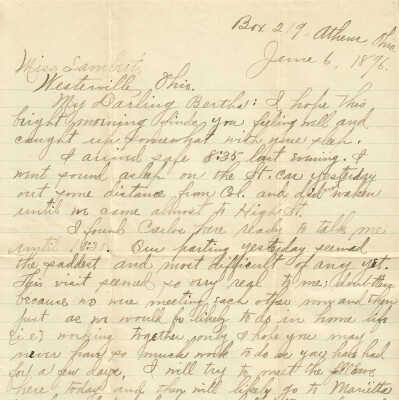 Box 219 Athens, Ohio
June 6, 1896.
Miss Lambert,
Westerville, Ohio.
My Darling Bertha: I hope this
bright morning finds you feeling well and
caught up somewhat with your
I arrived safe 8:35 last evening. I
went sound asleep on the St. car yesterday
out some distance from Col. and did not waken
until we came almost to High St.
I found Carlos here ready to talk me
until Our parting yesterday seemed
the saddest and most difficult of any yet.
This visit seemed so very real to me; doubtless
because we were meeting each other now and then
just as we would be likely to do in home life
(i.e.) working together, only I hope you may
never have so much work to do as you have had
for a few days. I will try to meet the
here today and then will likely go to Marietta